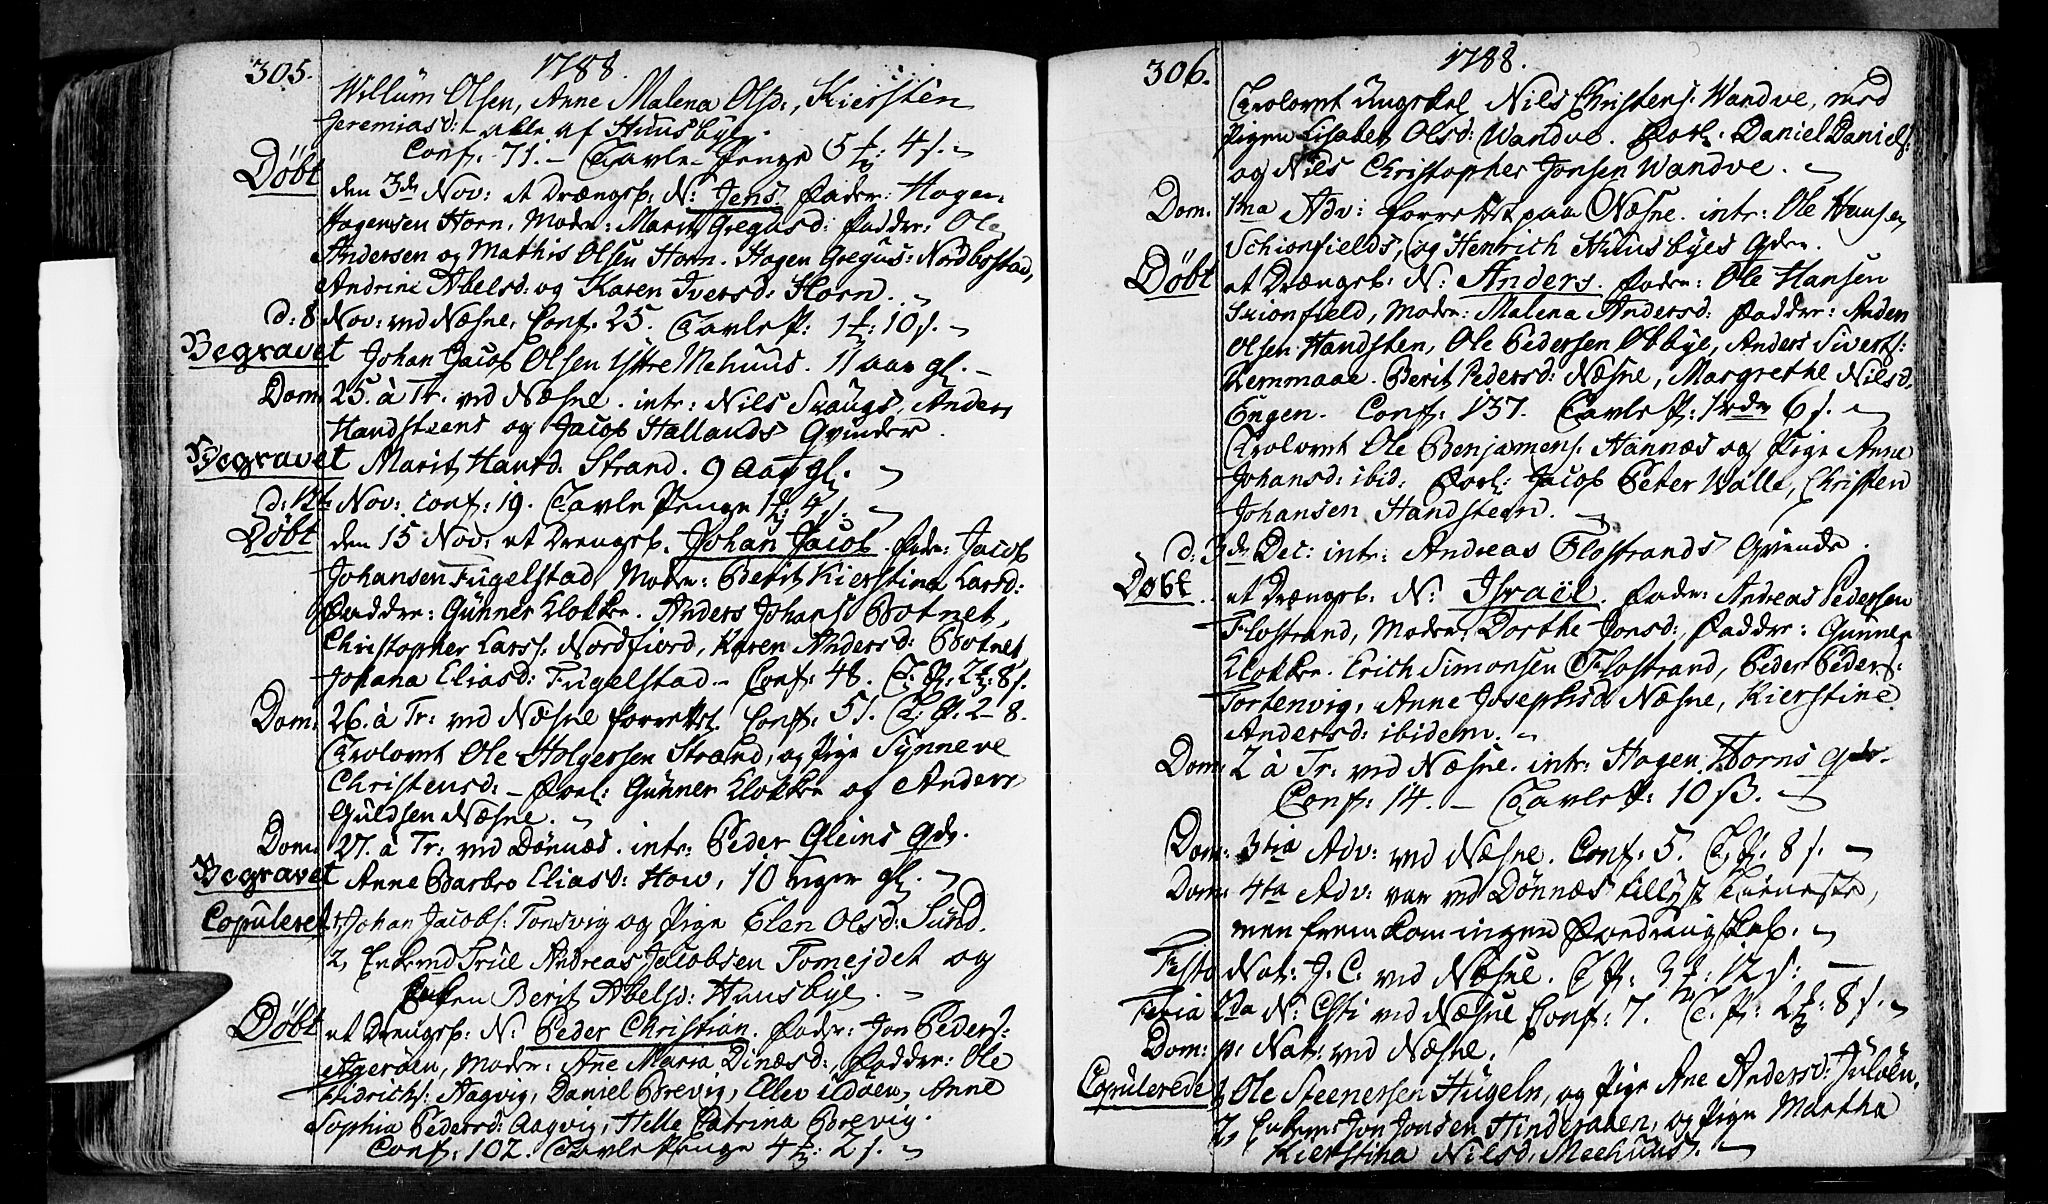 305. 1788.
Willum Olsen, Anne Malena Olsd:, Kiersten
Jeremiasd: - alle af Huusbye.
Conf: 71. - Tavle-Penge 5 ℔: 4 s.
Døbt den 3de Nov: et Drængeb. N: Jens. Fader: Hagen
Hagensen Horn, Moder: Marit Gregusd: Fadder: Ole
Andersen og Mathis Olsen Horn. Hagen Gregus: Nordbostad,
Andrine Abelsd: og Karen Iversd: Horn.
d: 8 Nov: ved Næsne. Conf: 25. Tavle P: 1 ℔: 10 s.
Begravet Johan Jacob Olsen Yttre Mehuus. 11 aar gl. -
Dom: 25. à Tr. ved Næsne. intr: Nils Svaugs, Anders
Handsteens og Jacob Hallands Qvinder.
Begravet Marit Hansd: Strand. 9 aar gl.
d: 12te Nov: conf: 19. Tavle Penge 1 ℔: 4 s.
Døbt den 15 Nov: et Drengeb. Johan Jacob. Fader: Jacob
Johansen Fugelstad, Moder: Berit Kierstina Larsd:
Fadder: Gunner Klokker. Anders Johans: Botnet,
Christopher Larss: Nordfiord, Karen Andersd: Botnet,
Johana Eliasd: Fugelstad - Conf: 48. T: P: 2 ℔: 8 s.
Dom: 26. à Tr: ved Næsne forrettet. Conf: 51. T: P. 2 - 8.
Trolovet Ole Holgersen Strand, og Pige Synneve
Christensd: - Forl: Gunner Klokker og Anders
Guldsen Næsne.
Dom: 27. à Tr: ved Dønnæs. intr: Peder Gleins Qde.
Begravet Anne Barbro Eliasd: How, 10 uger gl.
Copuleret 1, Johan Jacobs: Tonsvig og Pige Elen Olsd: Sund.
2, Enkemd Andreas Jacobsen Tomejdet og
Enken Berit Abelsd: Huusbye.
Døbt et Drengeb. N: Peder Christian. Fader: Jon Peders:
Agerøen, Moder: Ane Maria Dinæsd:, Fadder: Ole
Fidrichs: Aagvig, Daniel Brevig, Ellev Udøen, Anne
Sophia Pedersd: Aagvig, Helle Catrina Brevig.
Conf: 102. Tavle Penge 4 ℔: 2 s.
306. 1788.
Trolovet Ungskal Nils Christens: Wandve, med
Pigen Lisabet Olsd: Wandve. Forl: Daniel Daniels:
og Nils Christopher Jonsen Wandve.
Dom: 1ma Adv: forrettet paa Næsne. intr: Ole Hansen
Schionfields, og Henrich Huusbyes Qder.
Døbt et Drængeb. N: Anders. Fader: Ole Hansen
Skionfield, Moder: Malena Andersd: Fadder: Anders
Olsen Handsten, Ole Pedersen Østbye, Anders Siverts:
Remmaae. Berit Pedersd: Næsne, Margrethe Nilsd.
Engen. Conf: 137. Tavle P: 1 rdr 6 s.
Trolovet Ole Benjamens: Hannæs og Pige Anne
Johansd: ibid: Forl: Jacob Peter Walle, Christen
Johansen Handsteen.
d: 3de Dec: intr: Andreas Flostrands Qvinde.
Døbt et Drængeb: N: Israël. Fader: Andreas Pedersen
Flostrand, Moder, Dorthe Jonsd: Fadder: Gunner
Klokker. Erich Simonsen Flostrand, Peder Peders:
Tortenvig, Anne Josephsd Næsne, Kierstine
Andersd: ibidem.
Dom: 2 à Tr: ved Næsne. intr: Hagen Horns Qde.
Conf: 14. - Tavle P: 10 ß.
Dom: 3tia Adv: ved Næsne. Conf: 5. T: P: 8 s.
Dom: 4ta Adv: var ved Dønnæs tillyst Tieneste,
men fremkom ingen formedelst
Festo Nat: J. C. ved Næsne. T P: 3 ℔: 12 s:
Feria 2da N: Chti ved Næsne Conf: 7. T. P: 2 ℔: 8 s.
Dom: p: Nat: ved Næsne.
Copulerede 1, Ole Steenersen Hugeln, og Pige Ane Andersd: Juløen.
2, Enkem: Jon Jonsen Hinderaaen, og Pige Martha
Kierstina Nilsd: Meehuus.